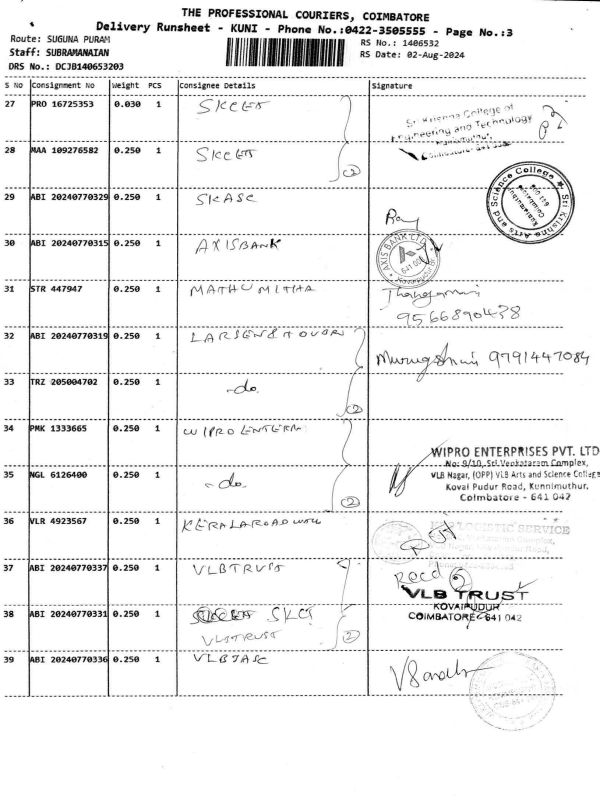 THE PROFESSIONAL COURIERS, COIMBATORE
Delivery Runsheet - KUNI - Phone No.:0422-3505555 - Page No.:3
Route: SUGUNA PURAM
Staff: SUBRAMANAIAN
DRS No.: DCJB140653203
RS No.: 1406532
RS Date: 02-Aug-2024
S No Consignment No Weight PCS Consignee Details Signature
27 PRO 16725353 0.030 1 SKCET
Sri Krishna College of
Engineering and Technology
Kuniamuthur,
Coimbatore
28 MAA 109276582 0.250 1 SKCET
2
29 ABI 20240770329 0.250 1 SKASC
Sri Krishna Arts and Science College
Coimbatore
641 008
30 ABI 20240770315 0.250 1 AXISBANK
AXIS BANK LTD
31 STR 447947 0.250 1 MATHUMITHA
9566890438
32 ABI 20240770319 0.250 1 LARSEN & TOUBRO
9791447084
33 TRZ 205004702 0.250 1 -do.
2
34 PMK 1333665 0.250 1 WIPRO ENTERP
WIPRO ENTERPRISES PVT. LTD
No: 9/10, Sri Venkataram Complex,
VLB Nagar, (OPP) VLB Arts and Science College
Kovai Pudur Road, Kunnimuthur,
Coimbatore - 641 042
35 NGL 6126400 0.250 1 -do.
2
36 VLR 4923567 0.250 1 KERALAROADWAYS
LOGISTIC SERVICE
37 ABI 20240770337 0.250 1 VLBTRUST
Recd 2
VLB TRUST
KOVAIPUDUR
COIMBATORE-641 042
38 ABI 20240770331 0.250 1 SKCT
VLBTRUST
2
39 ABI 20240770336 0.250 1 VLBJASC